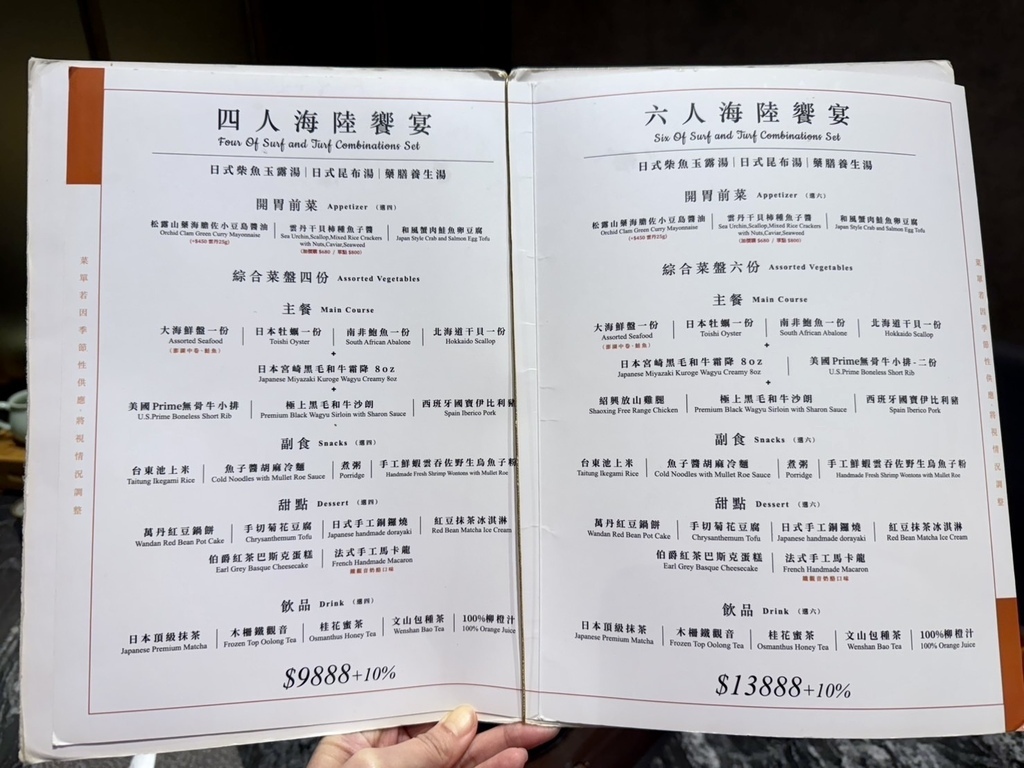 四人海陸饗宴
Four Of Surf and Turf Combinations Set
日式柴魚玉露湯|日式昆布湯|藥膳養生湯
開胃前菜 Appetizer (選四)
松露山藥海膽佐小豆島醬油 | 雲丹干貝柿種魚子醬 | 和風蟹肉鮭魚卵豆腐
Orchid Clam Green Curry Mayonnaise Sea Urchin,Scallop,Mixed Rice Crackers Japan Style Crab and Salmon Egg Tofu
with Nuts,Caviar,Seaweed
(+$450 雲丹25g)
(加價購 $680 / 單點 $800)
綜合菜盤四份 Assorted Vegetables
主餐 Main Course
大海鮮盤一份 | 日本牡蠣一份 | 南非鮑魚一份 | 北海道干貝一份
Assorted Seafood Toishi Oyster South African Abalone Hokkaido Scallop
+
日本宮崎黑毛和牛霜降 8oz
Japanese Miyazaki Kuroge Wagyu Creamy 8oz
+
美國Prime無骨牛小排 | 極上黑毛和牛沙朗 | 西班牙國寶伊比利豬
U.S.Prime Boneless Short Rib Premium Black Wagyu Sirloin with Sharon Sauce Spain Iberico Pork
副食 Snacks (選四)
台東池上米 | 魚子醬胡麻冷麵 | 煮粥 | 手工鮮蝦雲吞佐野生烏魚子粉
Taitung Ikegami Rice Cold Noodles with Mullet Roe Sauce Porridge Handmade Fresh Shrimp Wontons with Mullet Roe
甜點 Dessert (選四)
萬丹紅豆鍋餅 | 手切菊花豆腐 | 日式手工銅鑼燒 | 紅豆抹茶冰淇淋
Wandan Red Bean Pot Cake Chrysanthemum Tofu Japanese handmade dorayaki Red Bean Matcha Ice Cream
伯爵紅茶巴斯克蛋糕 | 法式手工馬卡龍
Earl Grey Basque Cheesecake French Handmade Macaron
鐵觀音奶酪口味
飲品 Drink (選四)
日本頂級抹茶 | 木柵鐵觀音 | 桂花蜜茶 | 文山包種茶 | 100%柳橙汁
Japanese Premium Matcha Frozen Top Oolong Tea Osmanthus Honey Tea Wenshan Bao Tea 100% Orange Juice
$9888+10%
菜單若因季節性供應,將視情況調整
六人海陸饗宴
Six Of Surf and Turf Combinations Set
日式柴魚玉露湯|日式昆布湯|藥膳養生湯
開胃前菜 Appetizer (選六)
松露山藥海膽佐小豆島醬油 | 雲丹干貝柿種魚子醬 | 和風蟹肉鮭魚卵豆腐
Orchid Clam Green Curry Mayonnaise Sea Urchin,Scallop,Mixed Rice Crackers Japan Style Crab and Salmon Egg Tofu
with Nuts,Caviar,Seaweed
(+$450 雲丹25g)
(加價購 $680 / 單點 $800)
綜合菜盤六份 Assorted Vegetables
主餐 Main Course
大海鮮盤一份 | 日本牡蠣一份 | 南非鮑魚一份 | 北海道干貝一份
Assorted Seafood Toishi Oyster South African Abalone Hokkaido Scallop
+
日本宮崎黑毛和牛霜降 8oz | 美國Prime無骨牛小排-二份
Japanese Miyazaki Kuroge Wagyu Creamy 8oz U.S.Prime Boneless Short Rib
+
紹興放山雞腿 | 極上黑毛和牛沙朗 | 西班牙國寶伊比利豬
Shaoxing Free Range Chicken Premium Black Wagyu Sirloin with Sharon Sauce Spain Iberico Pork
副食 Snacks (選六)
台東池上米 | 魚子醬胡麻冷麵 | 煮粥 | 手工鮮蝦雲吞佐野生烏魚子粉
Taitung Ikegami Rice Cold Noodles with Mullet Roe Sauce Porridge Handmade Fresh Shrimp Wontons with Mullet Roe
甜點 Dessert (選六)
萬丹紅豆鍋餅 | 手切菊花豆腐 | 日式手工銅鑼燒 | 紅豆抹茶冰淇淋
Wandan Red Bean Pot Cake Chrysanthemum Tofu Japanese handmade dorayaki Red Bean Matcha Ice Cream
伯爵紅茶巴斯克蛋糕 | 法式手工馬卡龍
Earl Grey Basque Cheesecake French Handmade Macaron
鐵觀音奶酪口味
飲品 Drink (選六)
日本頂級抹茶 | 木柵鐵觀音 | 桂花蜜茶 | 文山包種茶 | 100%柳橙汁
Japanese Premium Matcha Frozen Top Oolong Tea Osmanthus Honey Tea Wenshan Bao Tea 100% Orange Juice
$13888+10%
菜單若因季節性供應,將視情況調整